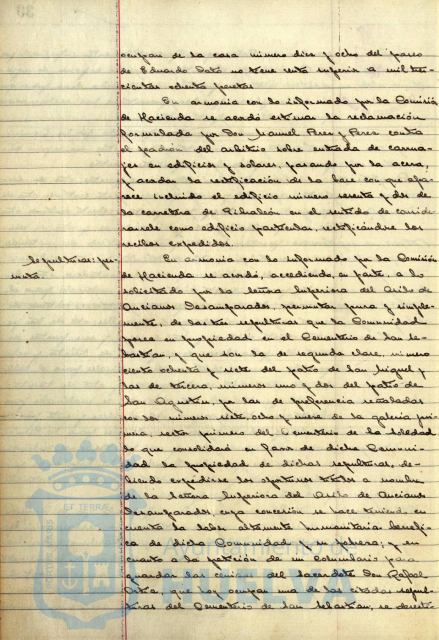 ocupan de la casa número diez y ocho del paseo
de Eduardo Dato no tiene renta superior a mil tres-
cientas ochenta pesetas
En armonía con lo informado por la Comisión
de Hacienda se acordó estimar la reclamación
formulada por Don Manuel Perez y Perez contra
el padrón del arbitrio sobre entrada de carrua-
jes en edificios y solares, pasando por la acera,
y acordar la rectificación de la base con que apa-
rece incluido el edificio número sesenta y dos de
la carretera de Gibraleón en el sentido de conside-
rarsele como edificio particular, rectificándose los
recibos expedidos.
Sepulturas: per-
muta.
En armonía con lo informado por la Comisión
de Hacienda se acordó, accediendo, en parte, a lo
solicitado por la Señora Superiora del Asilo de
Ancianos Desamparados, permutar pura y simple-
mente, de las tres sepulturas que la Comunidad
posee en propiedad en el Cementerio de San Se-
bastián, y que son la de segunda clase, número
ciento ochenta y siete del patio de San Miguel y
las de tercera, números uno y dos del patio de
San Agustín, por las de preferencia señaladas
con los números siete, ocho y nueve de la galería pri-
mera, sector primero del Cementerio de la Soledad
lo que consolidará en favor de dicha Comuni-
dad la propiedad de dichas sepulturas, de-
biendo expedirse los oportunos títulos a nombre
de la Señora Superiora del Asilo de Ancianos
Desamparados, cuya concesión se hace teniendo en
cuenta la labor altamente humanitaria benéfi-
ca de dicha Comunidad y su pobreza; y en
cuanto a la petición de un columbario para
guardar las cenizas del sacerdote Don Rafael
que hoy ocupan una de las citadas sepul-
turas del Cementerio de San Sebastián, se